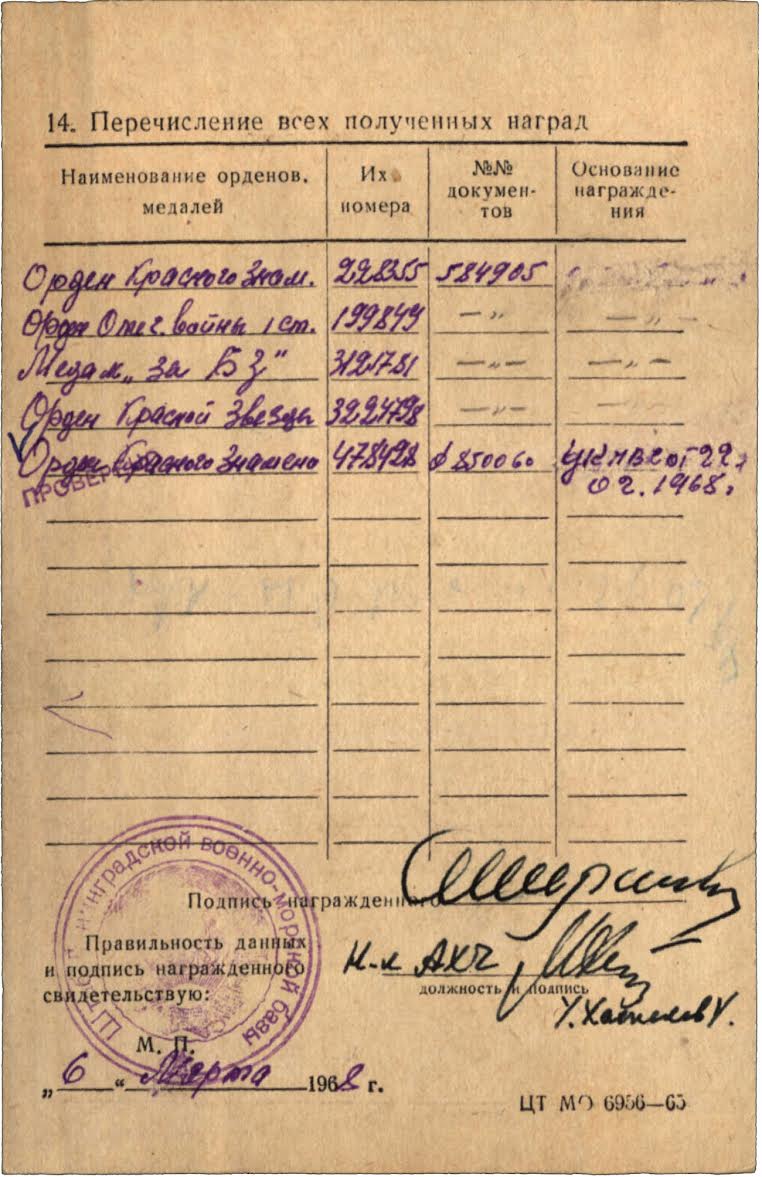 14. Перечисление всех полученных наград
Наименование орденов, медалей | Их номера | №№ документов | Основание награждения
Орден Красного Знам. 228355 584905
Орден Отеч. войны 1 ст. 199849 —"— —"—
Медаль „за БЗ" 3121781 —"— —"—
Орден Красной Звезды 3224798 —"— —"—
Орден Красного Знамено 478428 850060 от 22.
02.1968.
ПРОВЕРЕНО
ШТАБ Ленинградской военно-морской базы
Подпись награжденного
Правильность данных
и подпись награжденного
свидетельствую:
Н-к АХЧ
должность и подпись
М. П.
„6" Марта 1968 г.
ЦТ МО 6956—65